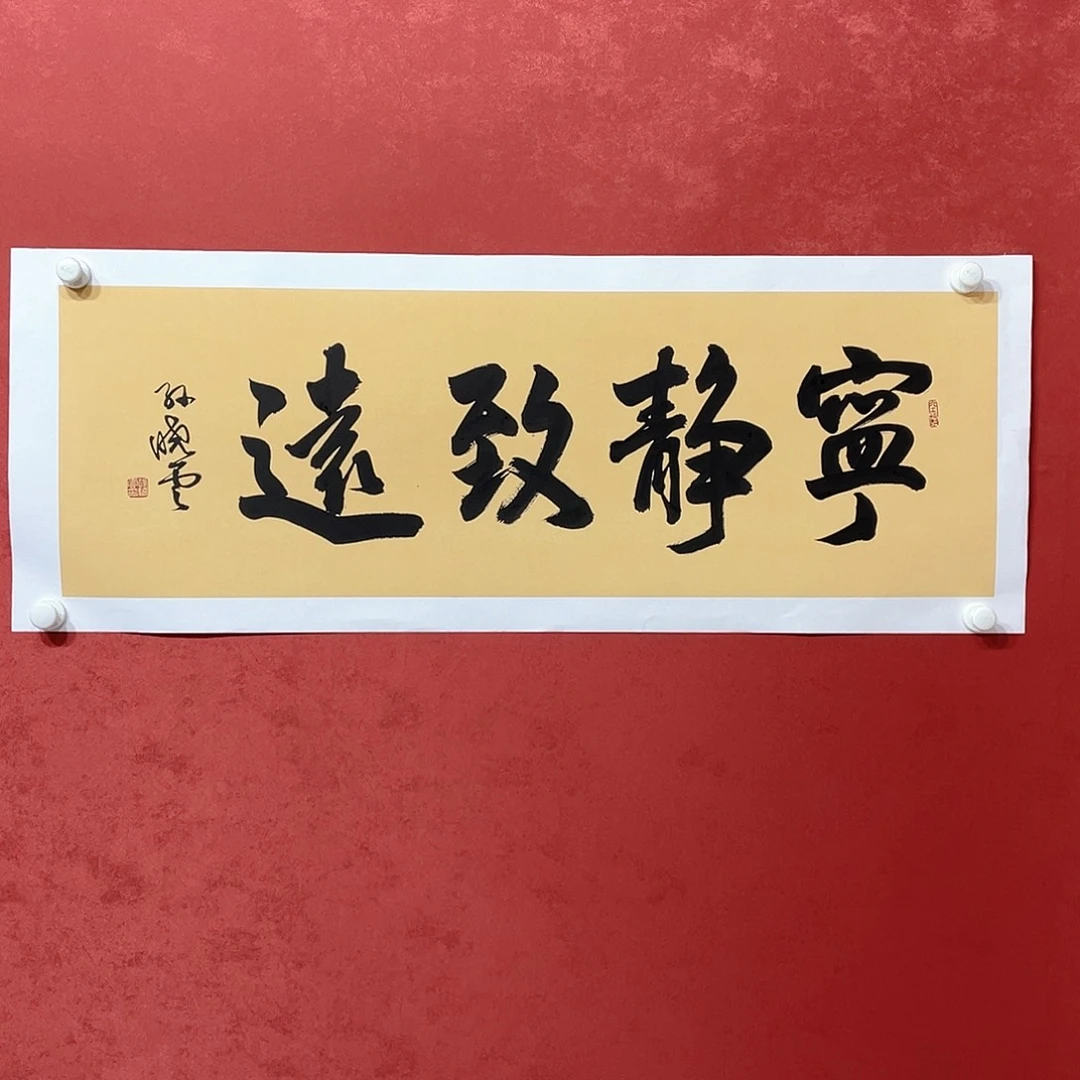 寧静致遠
孙晓云